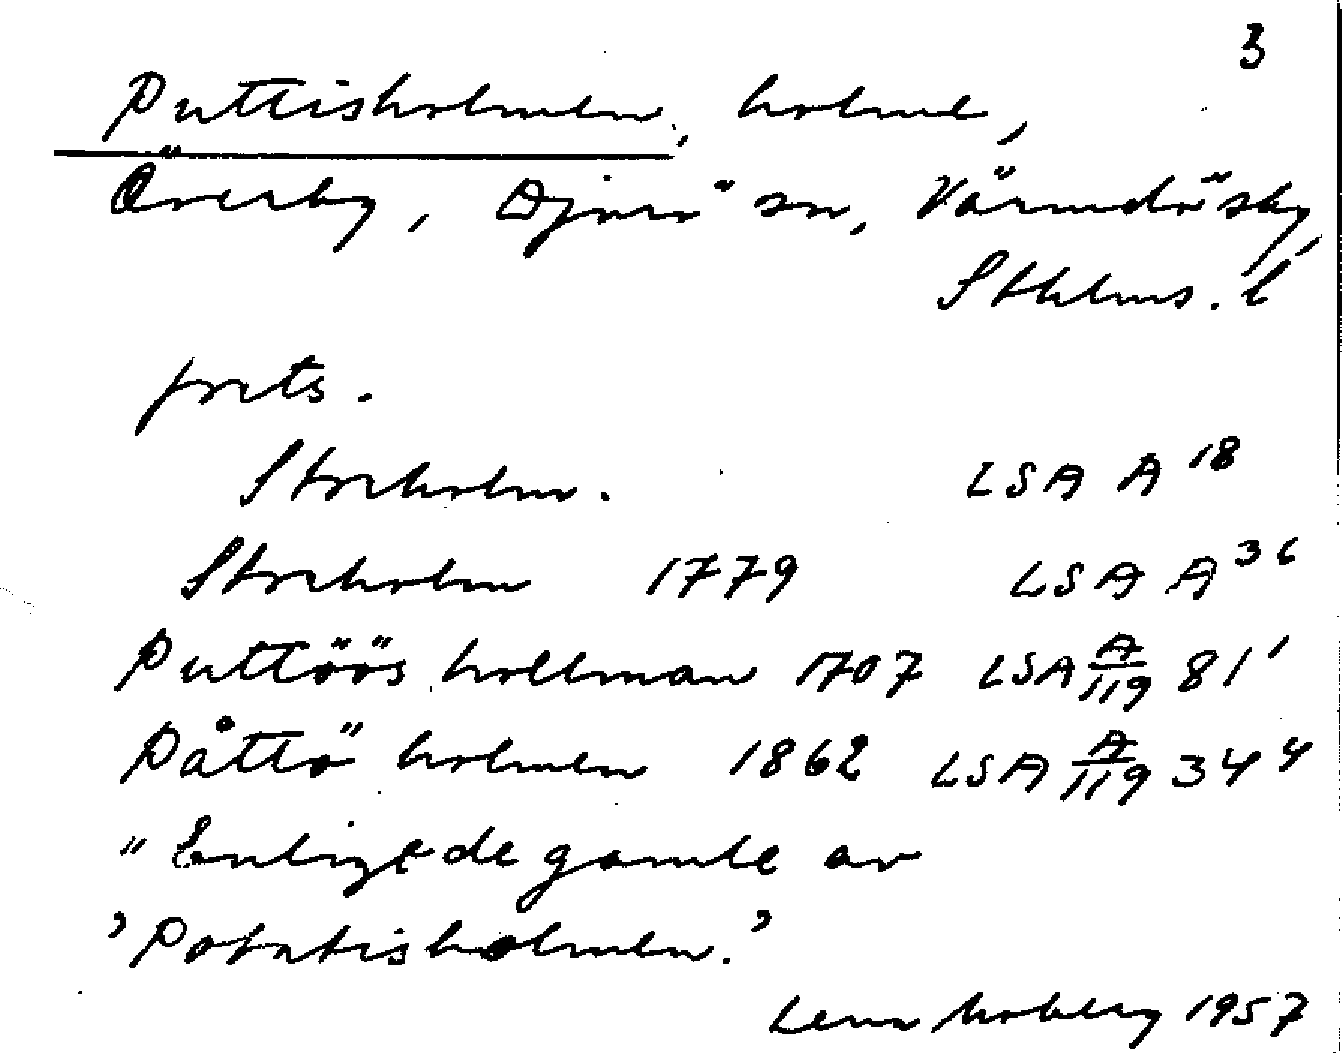 3
Puttisholmen, holme,
Överby, Djurö sn, Värmdö skg,
Sthlms. l
forts.
Storholm. LSA A 18
Storholm 1779 LSA A 36
Puttöös hollman 1707 LSA A/119 81'
Påttö holmen 1862 LSA A/119 34 4
"Enligt de gamle av
'Potatisholmen.'
Lena Moberg 1957